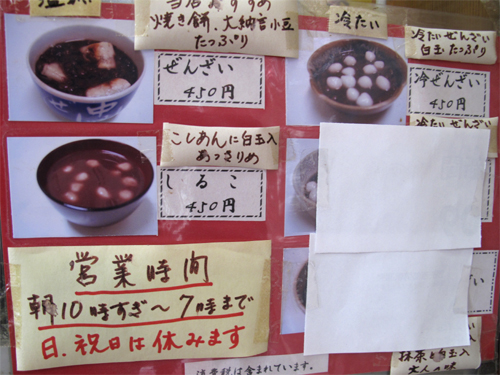 当店おすすめ
焼き餅、大納言小豆
たっぷり
ぜんざい
450円
冷たい
冷たいぜんざい
白玉たっぷり
冷ぜんざい
450円
冷たいぜんざい
こしあんに白玉入
あっさりめ
しるこ
450円
営業時間
朝10時すぎ〜7時まで
日、祝日は休みます
消費税は含まれています。
抹茶と白玉入
大人の味